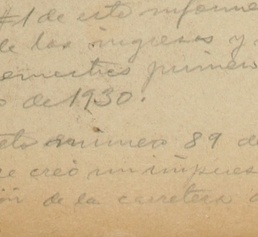 #1 de este informe
de los ingresos y
semestres primer
de 1930.
numero 89 de
creó un impues
ión de la carretera